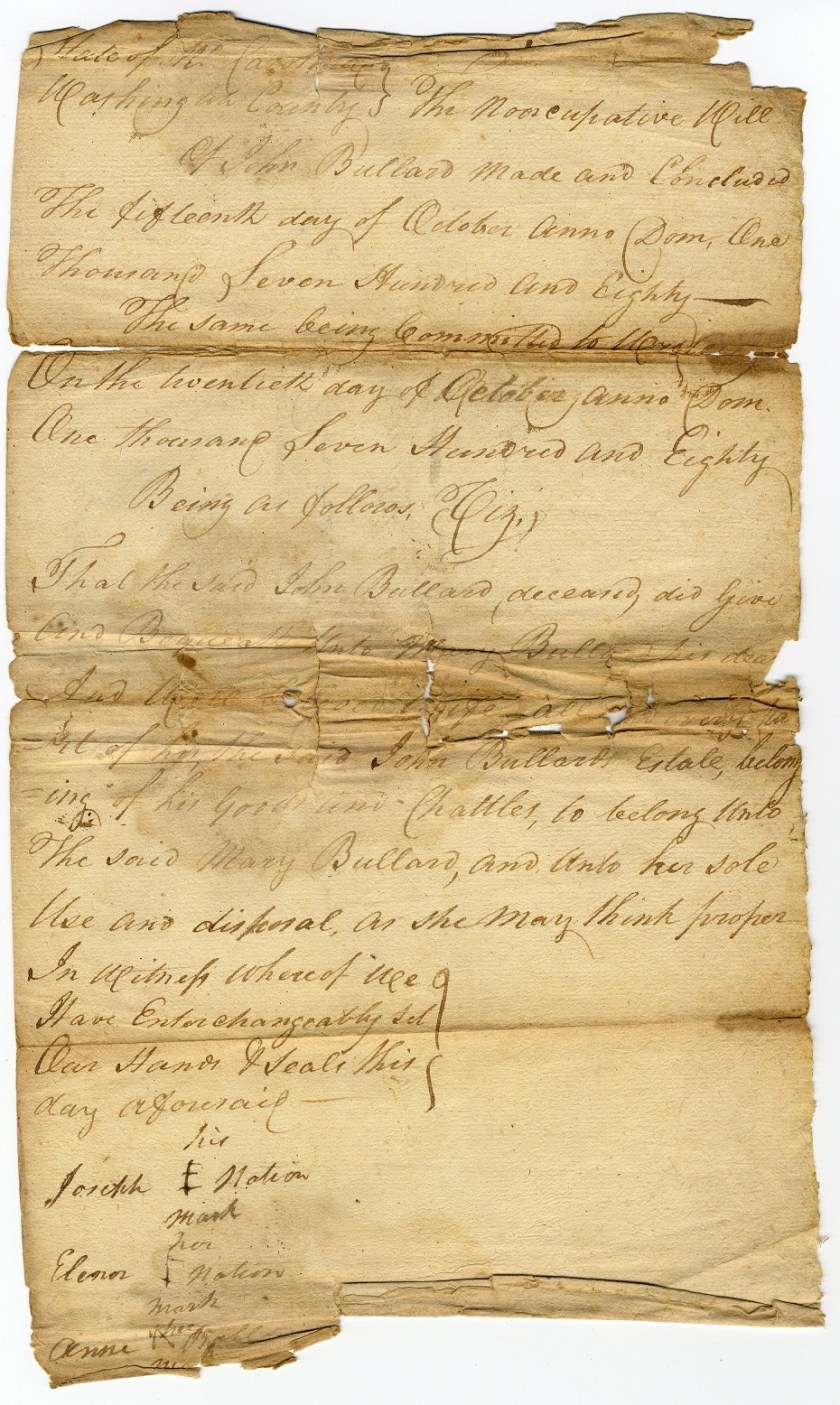 State of No Carolina }
Washington County } The Nooncupative Will
Of John Bullard Made and Concluded
The fifteenth day of October Anno Dom, One
Thousand Seven Hundred and Eighty —
The same being Committed to
On the twentieth day of October Anno Dom.
One thousand Seven Hundred and Eighty
Being as follows, Viz,)
That the said John Bullard, deceasd, did Give
And Bequeath Unto Mary Bullard his dear
And wife all and every pa
rt of his the said John Bullards Estate, belong
=ing of his Goods and Chattles, to belong Unto
The said Mary Bullard, and Unto her sole
Use and disposal, as she may think proper
In Witness Whereof We
Have Enterchangeably Set
Our Hands & Seals this
day aforesaid —
his
Joseph E Nation
mark
her
Elenor F Nation
mark
her
Anne